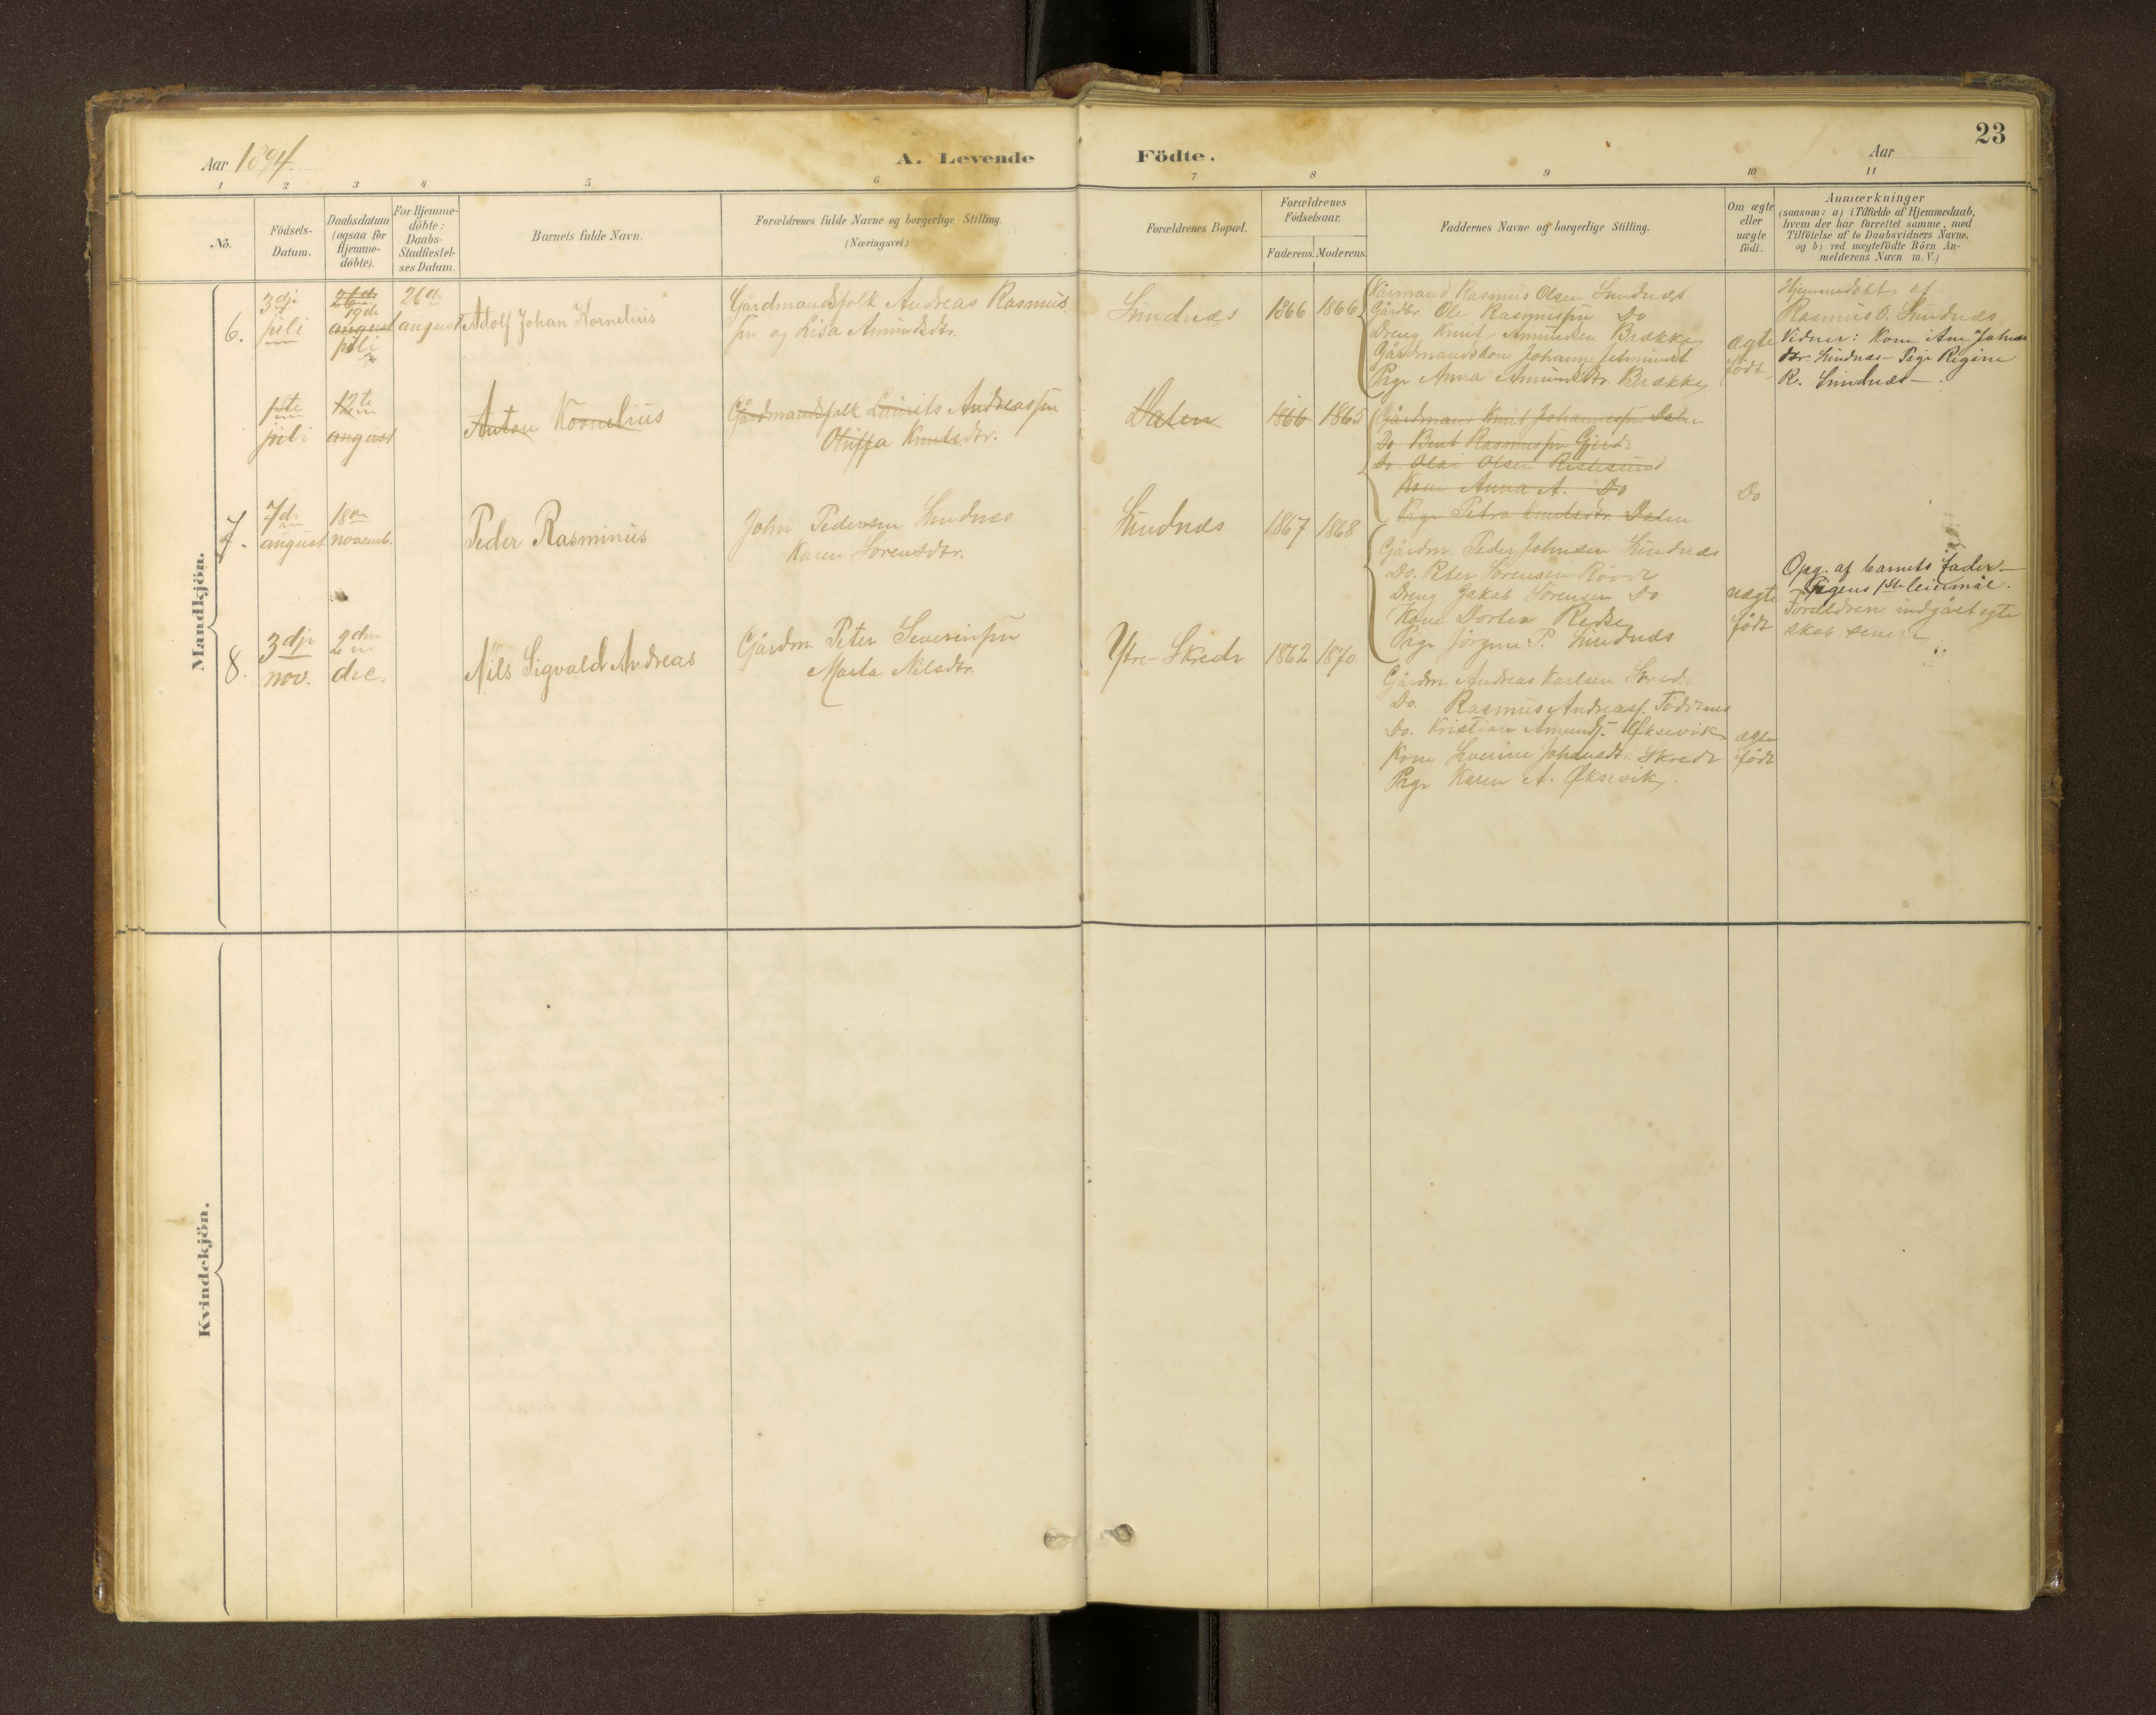 23
Aar 1894.
A. Levende Födte.
Aar
1 2 3 4 5 6 7 8 9 10 11
No.
Födsels-
Datum.
Daabsdatum
(ogsaa for
Hjemme-
döbte).
For Hjemme-
döbte:
Daabs-
Stadfæstel-
ses Datum.
Barnets fulde Navn.
Forældrenes fulde Navne og borgerlige Stilling.
(Næringsvei.)
Forældrenes Bopæl.
Forældrenes
Födselsaar.
Faderens. Moderens.
Faddernes Navne og borgerlige Stilling.
Om ægte
eller
uægte
födt.
Anmærkninger
(saasom: a) i Tilfælde af Hjemmedaab,
hvem der har forrettet samme, med
Tilföielse af to Daabsvidners Navne,
og b) ved uægtefödte Börn An-
melderens Navn m. V.)
Mandkjön.
6.
3dje
juli
26de
19de
august
juli
26de
august
Adolf Johan Kornelius
Gårdmandsfolk Andreas Rasmus
sen og Lisa Amundsdtr.
Sundnæs
1866 1866
Kårmand Rasmus Olsen Sundnæs
Gårdbr. Ole Rasmussen Do
Dreng Knut Amundsen Brække
Gårdmandskone Johanne
Pige Anna Amundsdtr. Brække
ægte
født
Hjemmedøbt af
Rasmus O. Sundnæs
Vidner: Kone Ane Johns
dtr. Sundnæs - Pige Regine
R. Sundnæs
1ste
juli
12te
august
Anton Kornelius
Gårdmandsfolk Laurits Andreassen
Oliffa Knutsdtr.
Dalen
1866 1865
Gårdmand Knut Johannessen Dalen
Do Bent Rasmussen Gjerde
Do. Olai Olsen Ristesund
Kone Anna A. Do
Pige Petra Knutsdtr. Dalen
Do
7.
7de
august
18de
novemb.
Peder Rasminus
John Pedersen Sundnæs
Karen Sørensdtr.
Sundnæs
1867 1868
Gårdm. Peder Johnsen Sundnæs
Do. Peter Sørensen Røvde
Dreng Jakob Sørensen Do
Kone Dortea Redse
Pige Jørgine P. Sundnæs
uægte
født
Opg. af barnets fader
Pigens 1ste leiermål.
Forældrene indgået ægte
skab senere
8.
3dje
nov.
2den
dec.
Nils Sigvald Andreas
Gårdm. Peter Severinsen
Marta Nilsdtr.
Ytre-Skrede
1862 1870
Gårdm. Andreas Karlsen Skrede
Do. Rasmus Andreass.
Do. Kristian Amunds. Øksevik
Kone Severine Johansdt. Skrede
Pige Karen A. Øksevik.
ægte
født
Kvindekjön.